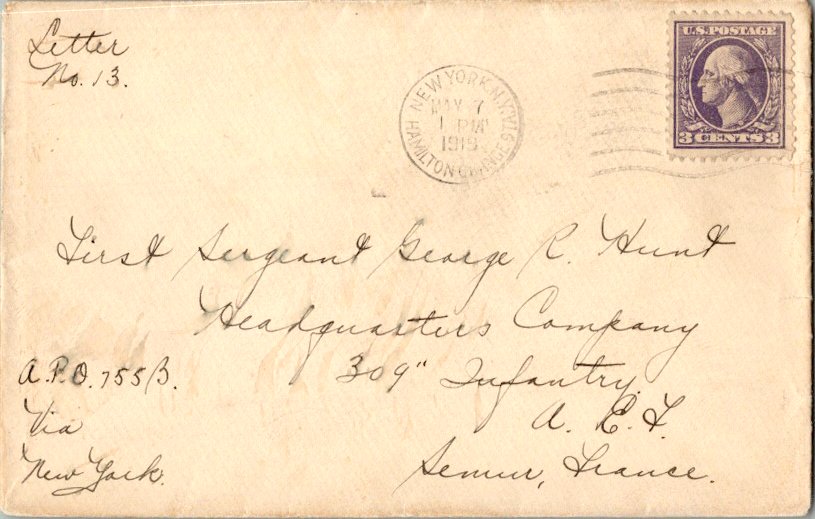 Letter
No. 13.
NEW YORK, N.Y. STA. G
MAY 7
1 PM
1919
HAMILTON GRANGE
U.S. POSTAGE
3 CENTS 3
First Sergeant George R. Hunt
Headquarters Company
309" Infantry.
A. E. F.
Semur, France.
A.P.O. 755B.
Via
New York.